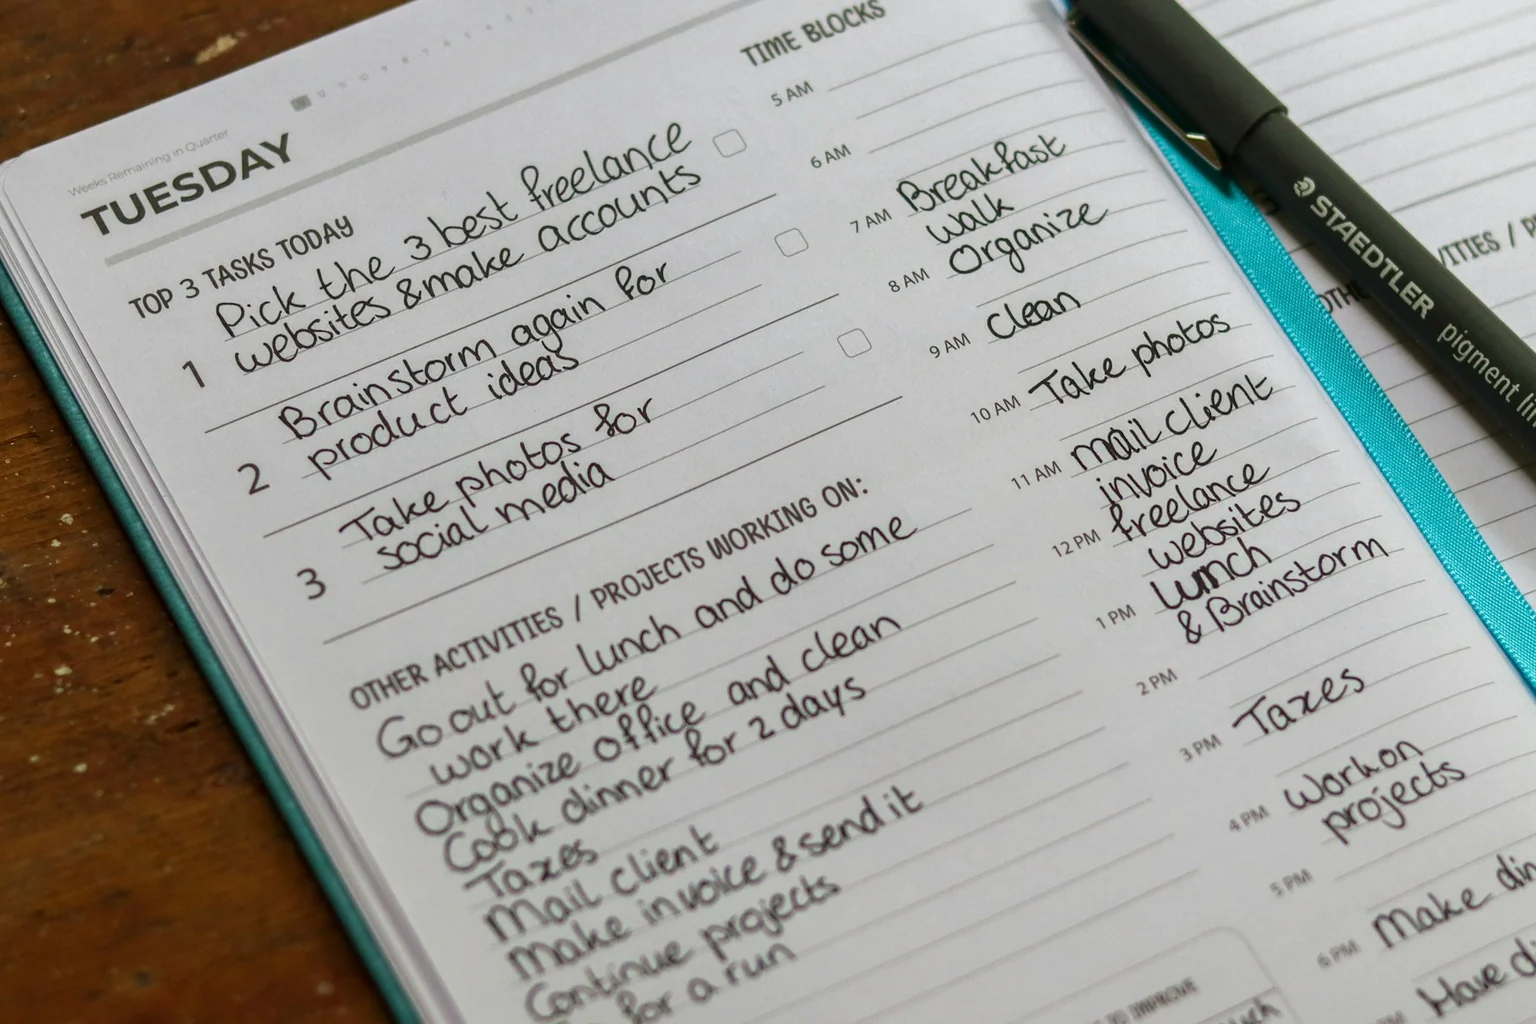 Weeks Remaining in Quarter
TUESDAY
TOP 3 TASKS TODAY
1
Pick the 3 best freelance
websites & make accounts
2
Brainstorm again for
product ideas
3
Take photos for
social media
OTHER ACTIVITIES / PROJECTS WORKING ON:
Go out for lunch and do some
work there
Organize office and clean
Cook dinner for 2 days
Taxes
Mail client
Make invoice & send it
Continue projects
for a run
TIME BLOCKS
5 AM
6 AM
7 AM Breakfast
walk
8 AM Organize
9 AM Clean
10 AM Take photos
11 AM mail client
invoice
12 PM freelance
websites
1 PM Lunch
& Brainstorm
2 PM
3 PM Taxes
4 PM Work on
projects
5 PM
6 PM Make din
Have d
TO IMPROVE
STAEDTLER pigment lin
VITIES / P
OTHE